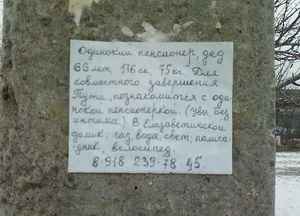 Одинокий пенсионер, дед
66 лет 176 см, 75 кг. Для
совместного завершения
Пути, познакомится с оди-
нокой пенсионеркой. (Увы, без
интима) В Елизаветинской
домик: газ, вода, свет; палиса-
дник, велосипед.
8-918 239-78 45.